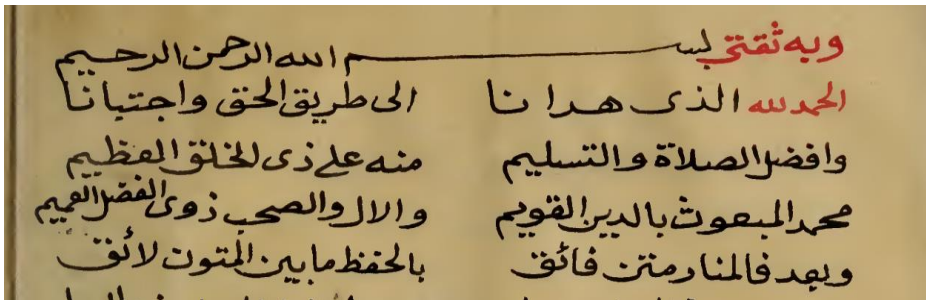 وبه ثقتي بسم الله الرحمن الرحيم
الحمد لله الذى هدانا الى طريق الحق واجتبانا
وافضل الصلاة والتسليم منه على ذى الخلق العظيم
محمد المبعوث بالدين القويم والال والصحب ذوى الفضل العميم
وبعد فالمنار متن فائق بالحفظ ما بين المتون لائق